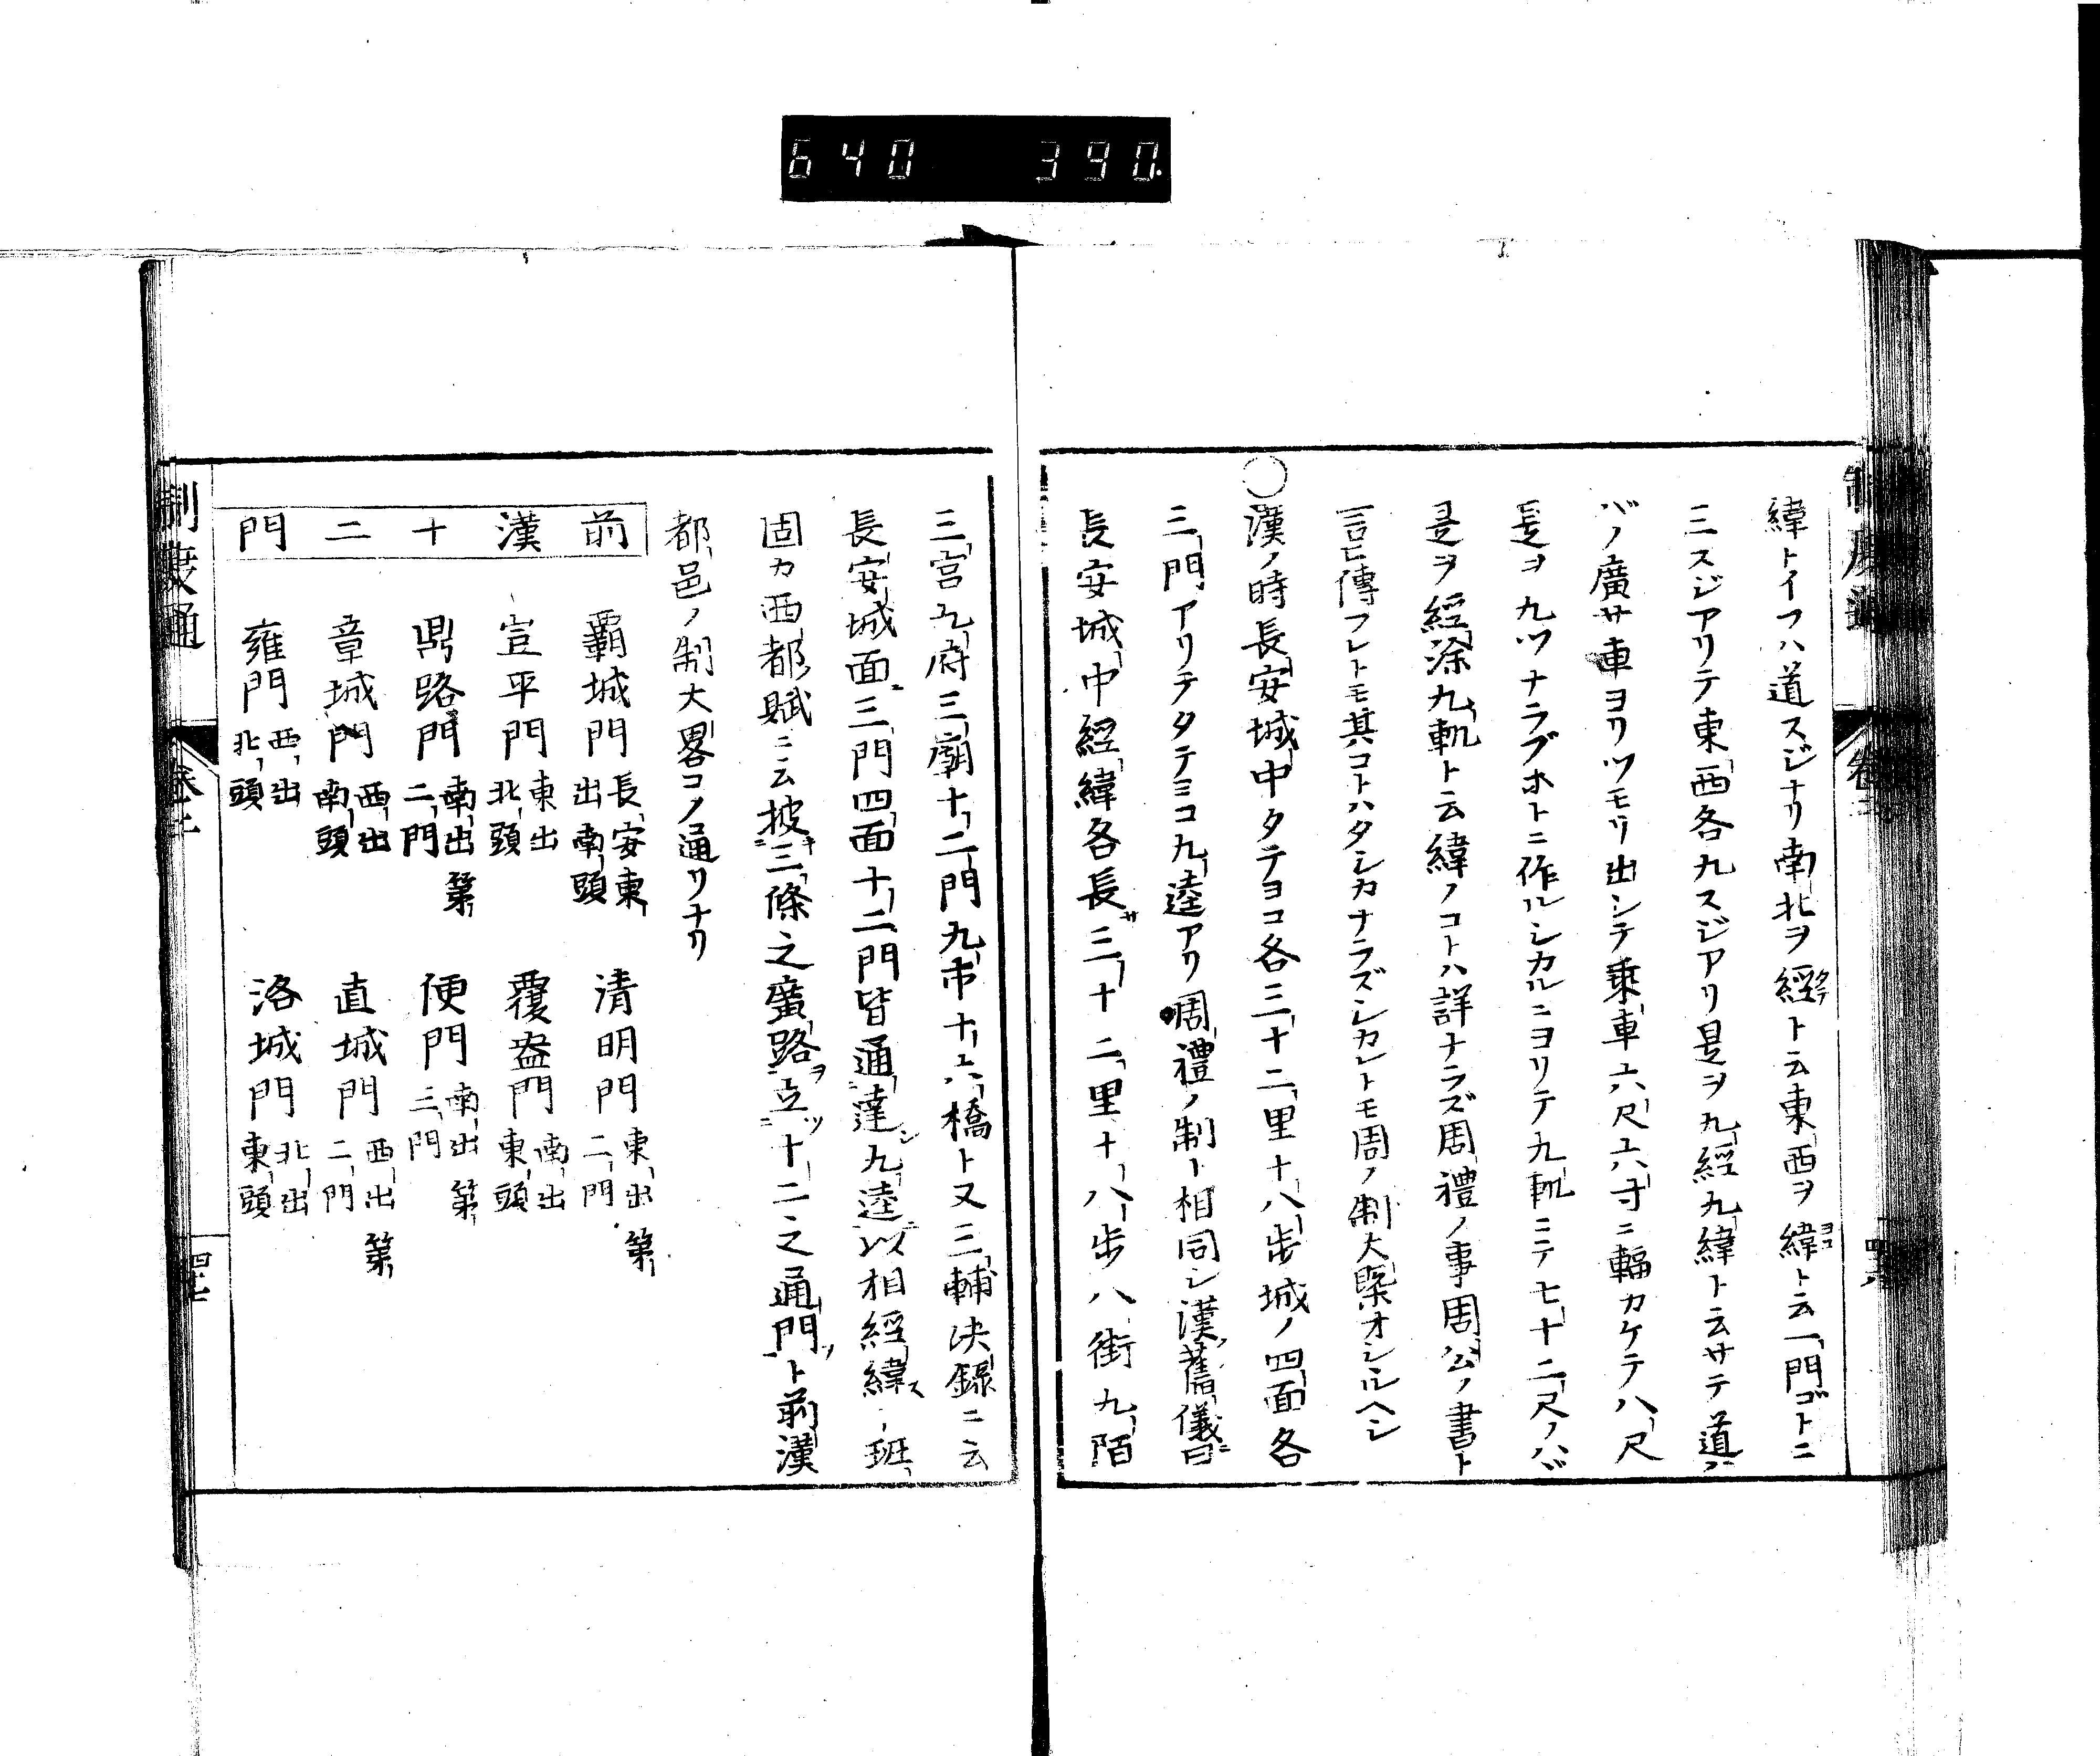 640 390.
緯トイフハ道スジナリ南北ヲ經タテト云東西ヲ緯ヨコト云一門ゴトニ
三スジアリテ東西各九スジアリ是ヲ九經九緯ト云サテ道ハ
バノ廣サ車ヨリツモリ出シテ乗車六尺六寸ニ輻カケテ八尺
是ヲ九ツナラブホトニ作ルシカルニヨリテ九軌ニテ七十二尺ノハバ
是ヲ經涂九軌ト云緯ノコトハ詳ナラズ周禮ノ事周公ノ書ト
言ヒ傳フレトモ其コトハタシカナラズシカレトモ周ノ制大槩オシルヘシ
○漢ノ時長安城中タテヨコ各三十二里十八歩城ノ四面各
三門アリテタテヨコ九逵アリ周禮ノ制ト相同シ漢舊儀曰
長安城中經緯各長サ三十二里十八歩八街九陌
三宮九府三廟十二門九市十六橋ト又三輔決録ニ云
長安城面三門四面十二門皆通達九逵以相經緯ス班
固カ西都賦ニ云披三條之廣路ヲ立ツ十二之通門ト前漢
都邑ノ制大畧コノ通リナリ
前漢十二門
覇城門 長安東出南頭 清明門 東出第二門
宣平門 東出北頭 覆盎門 南出東頭
鼎路門 南出第二門 便門 南出第三門
章城門 西出南頭 直城門 西出第二門
雍門 西出北頭 洛城門 北出東頭
制度通 卷二 四七